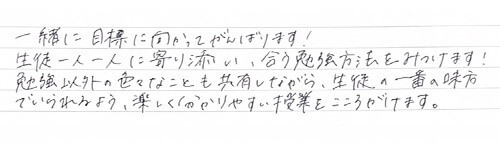 一緒に目標に向かってがんばります！
生徒一人一人に寄り添い、合う勉強方法をみつけます！
勉強以外の色々なことも共有しながら、生徒の一番の味方
でいられるよう、楽しく分かりやすい授業をこころがけます。